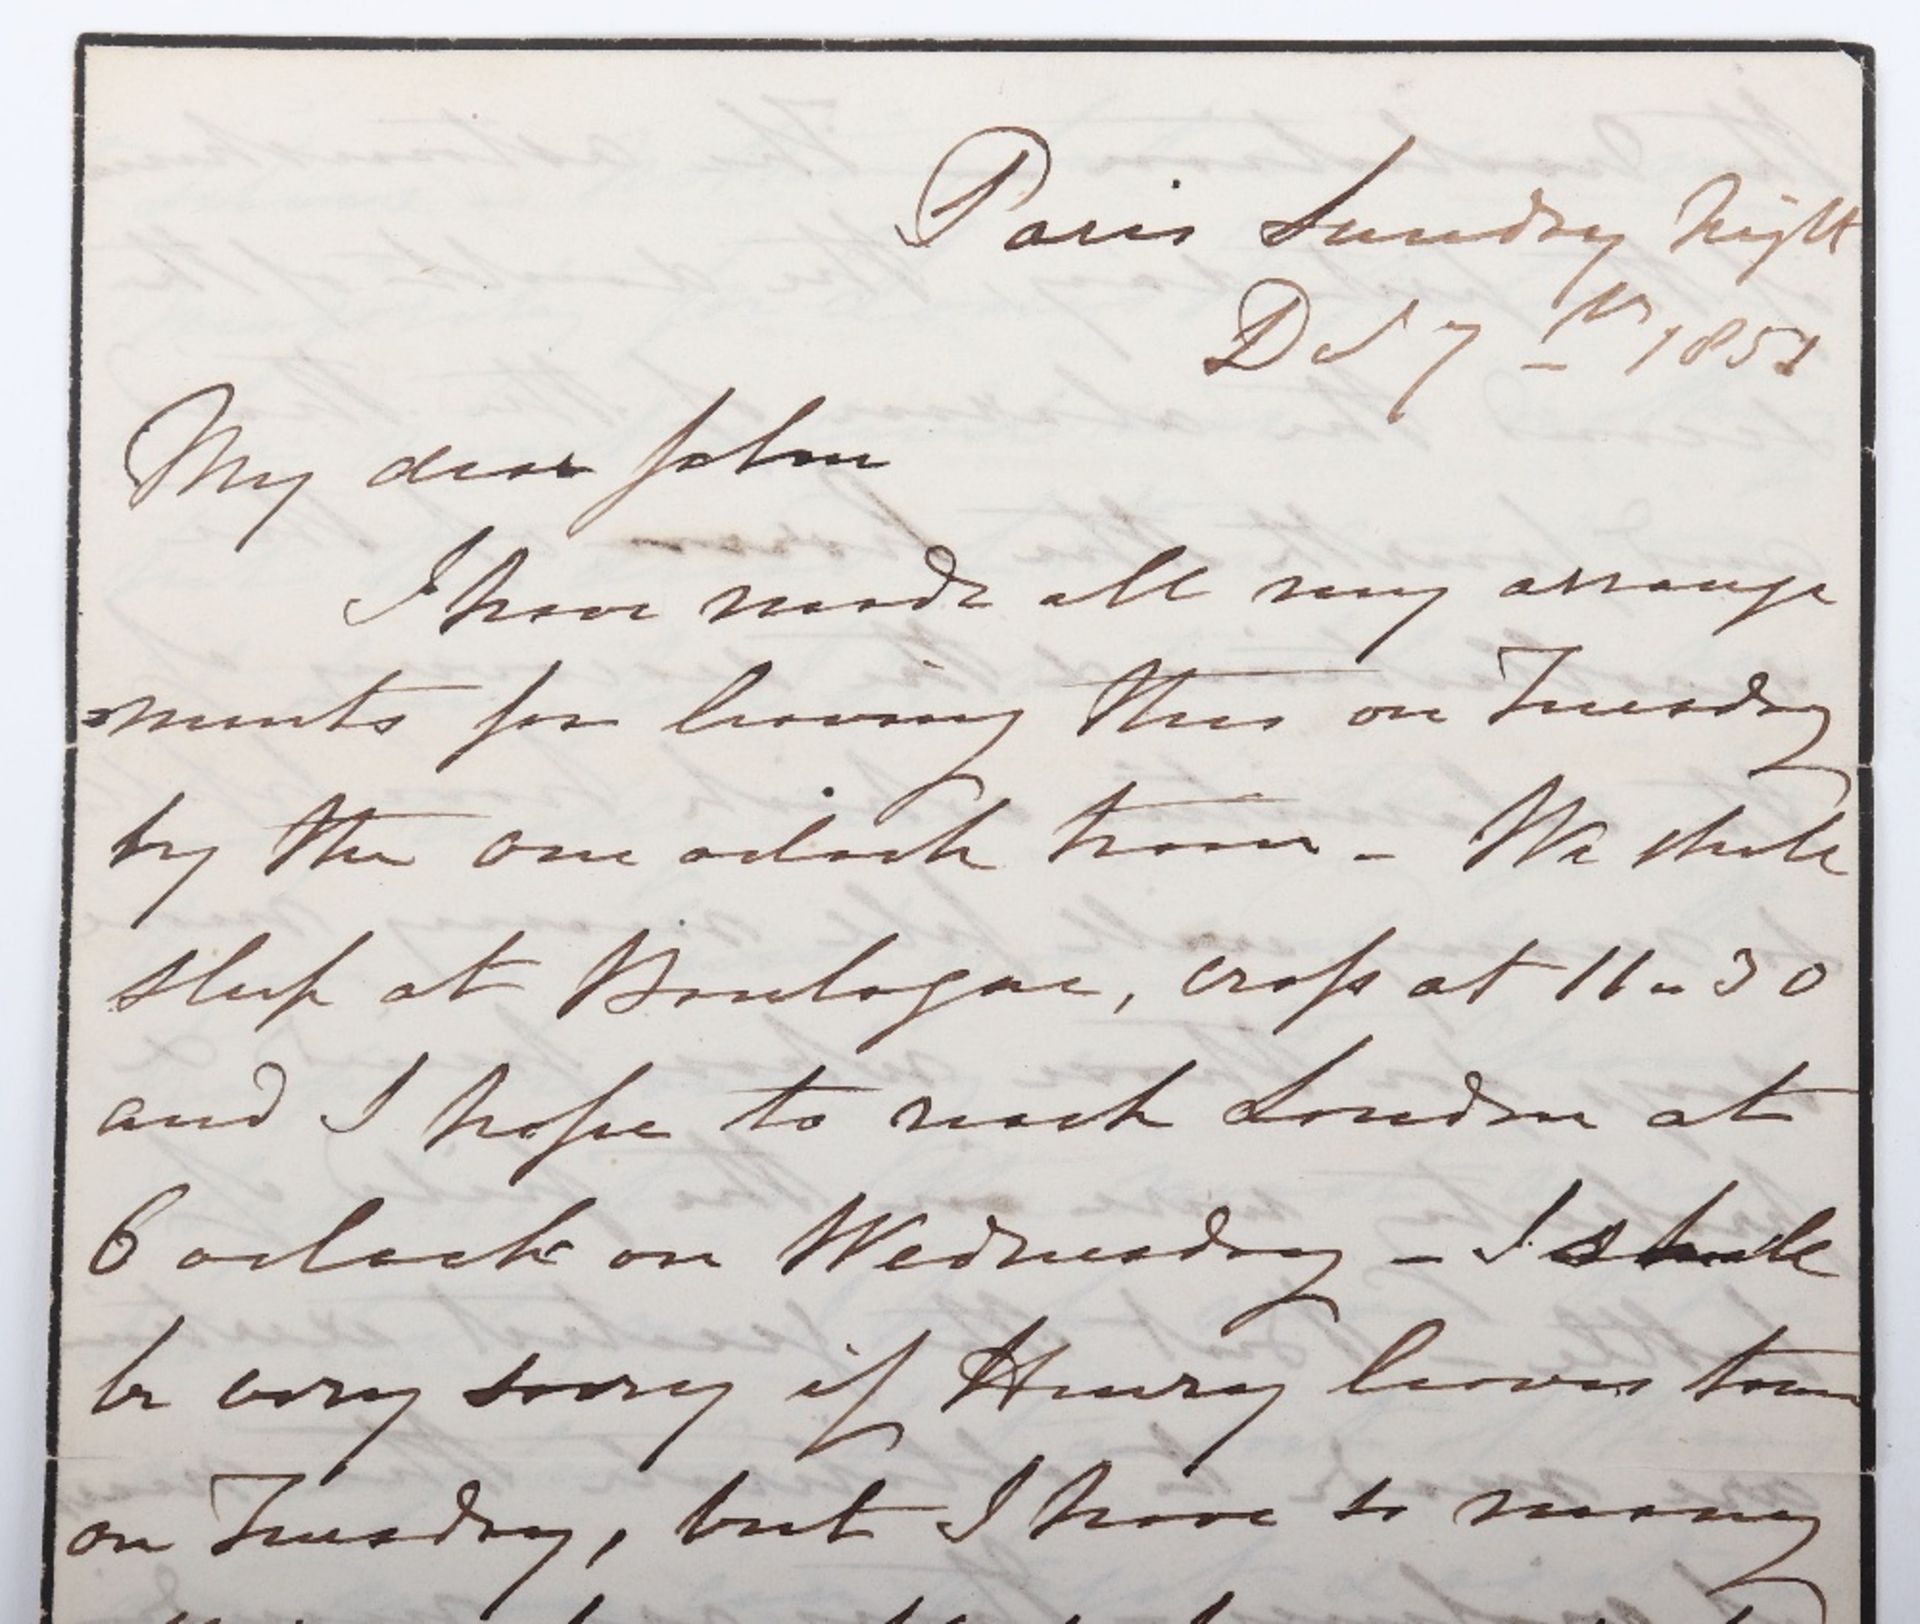 Paris Sunday night
Dec 7th 1851
My dear John
I have made all my arrange
ments for leaving this on Tuesday
by the one oclock train - We shall
sleep at Boulogne, cross at 11-30
and I hope to reach London at
6 oclock on Wednesday - I shall
be very sorry if Henry leaves town
on Tuesday, but I have so many